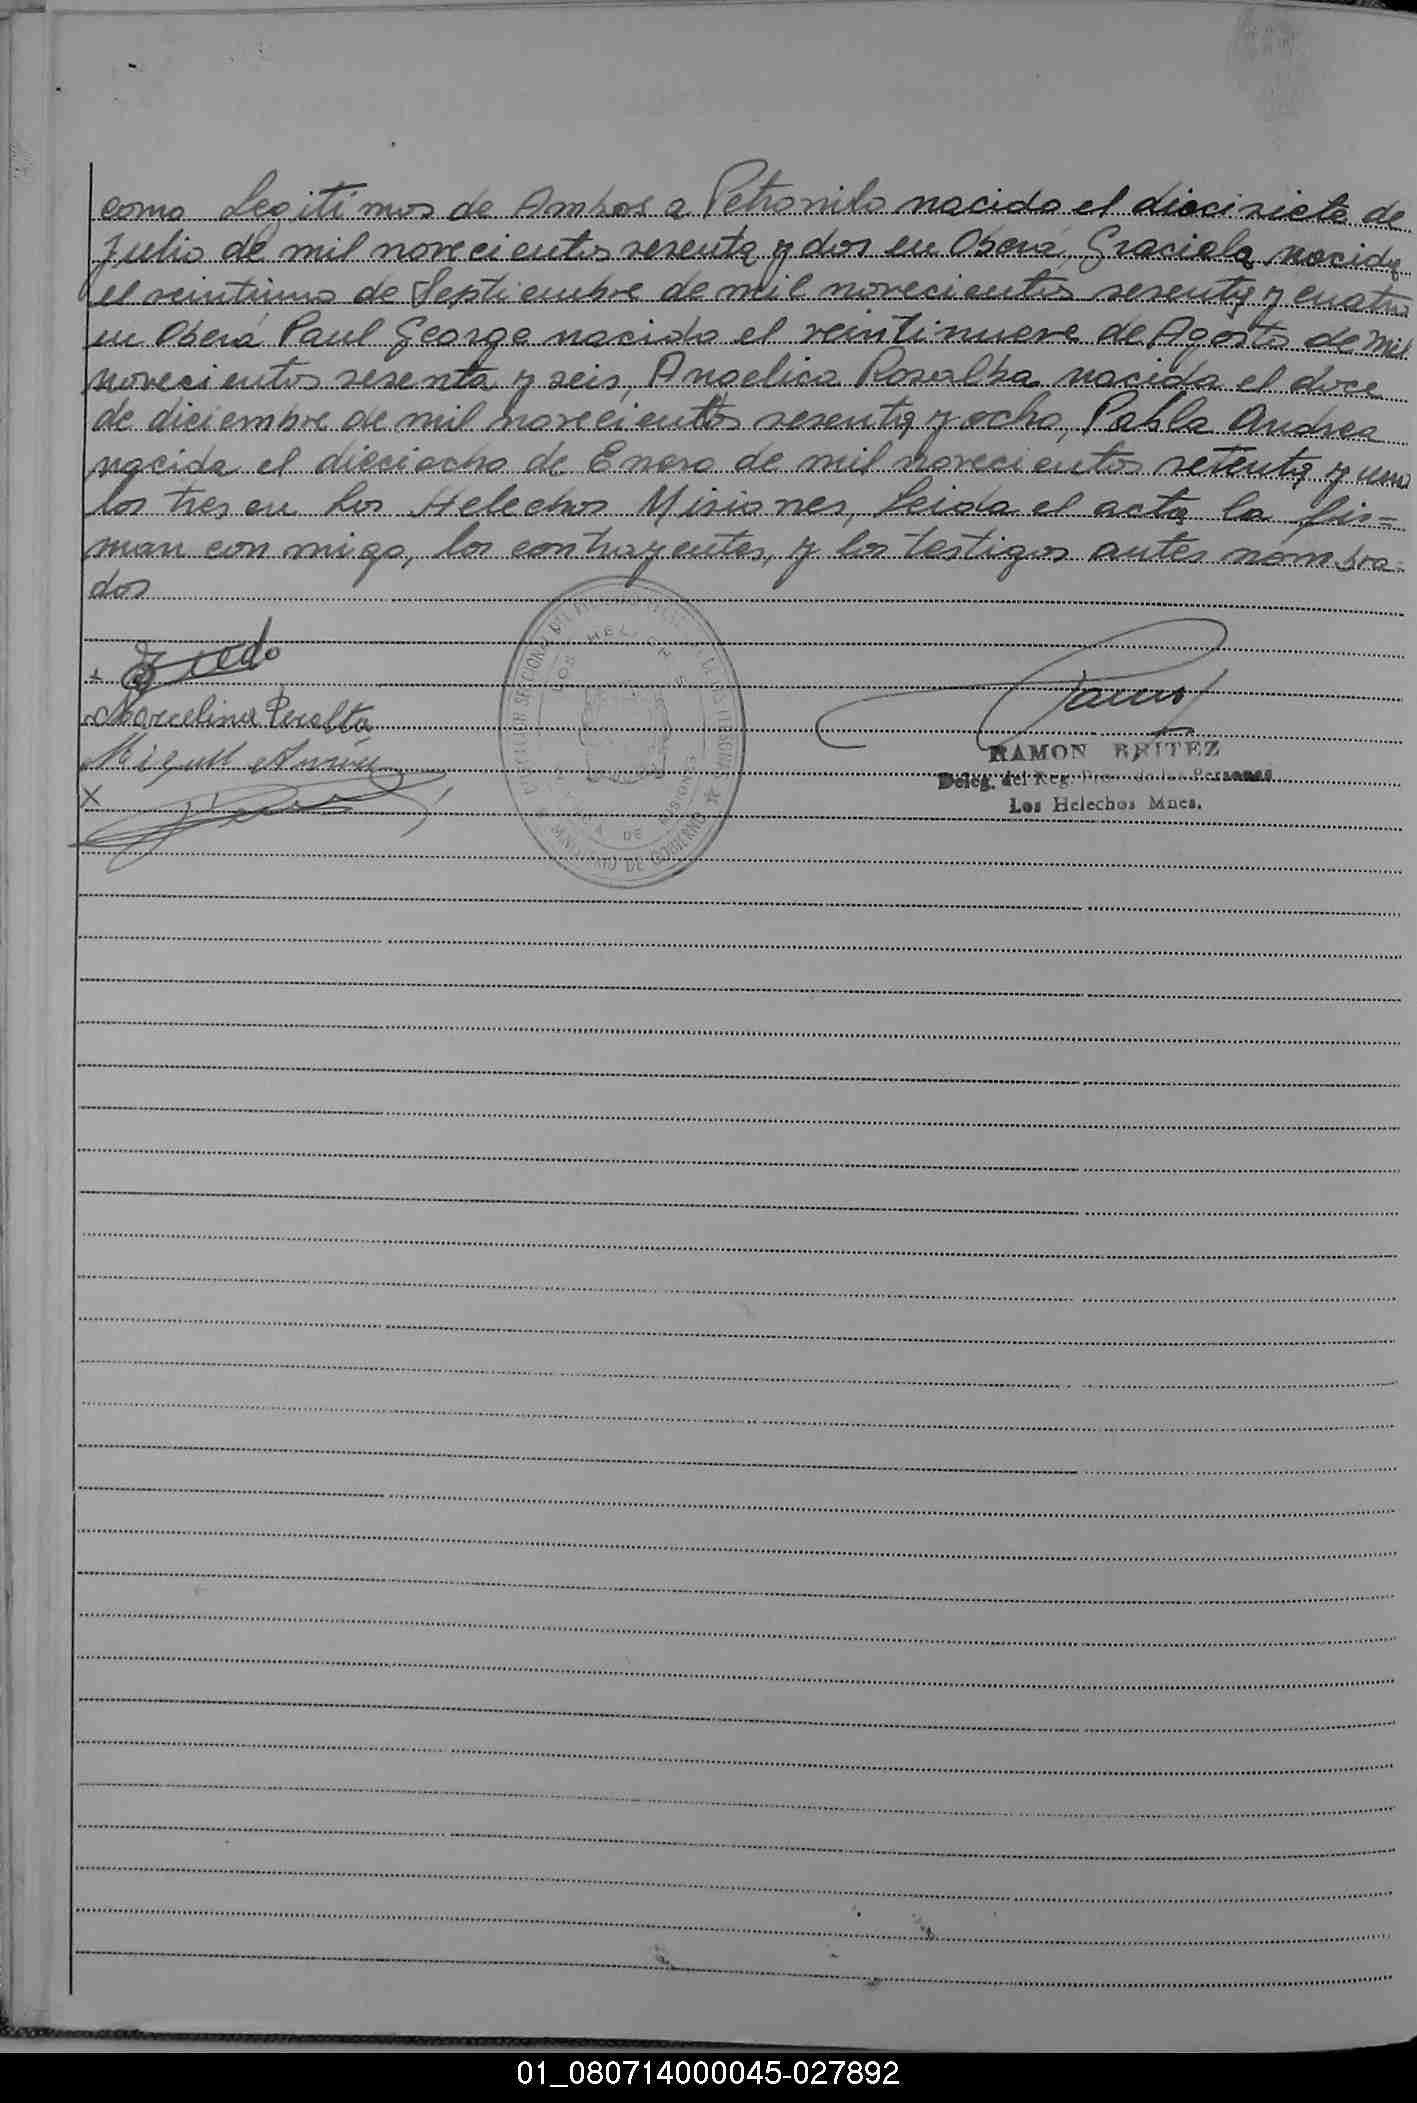 como Legitimos de Ambos a Petronilo nacido el diecisiete de
Julio de mil novecientos sesenta y dos en Oberá, Graciela nacida
el veintiuno de Septiembre de mil novecientos sesenta y cuatro
en Oberá Paul George nacido el veintinueve de Agosto de Mil
novecientos sesenta y seis, Angelica Rosalba nacida el doce
de diciembre de mil novecientos sesenta y ocho, Pabla Andrea
nacida el dieciocho de Enero de mil novecientos setenta y uno
los tres en Los Helechos Misiones, Leida el acta la fir=
man con migo, los contrayentes, y los testigos antes nombra=
dos
Marcelina Peralta
Miguel
X
LOS HELECHOS
MINISTERIO DE GOBIERNO
RAMON BRITEZ
Deleg. del Reg. Prov. de las Personas
Los Helechos Mnes.
01_080714000045-027892